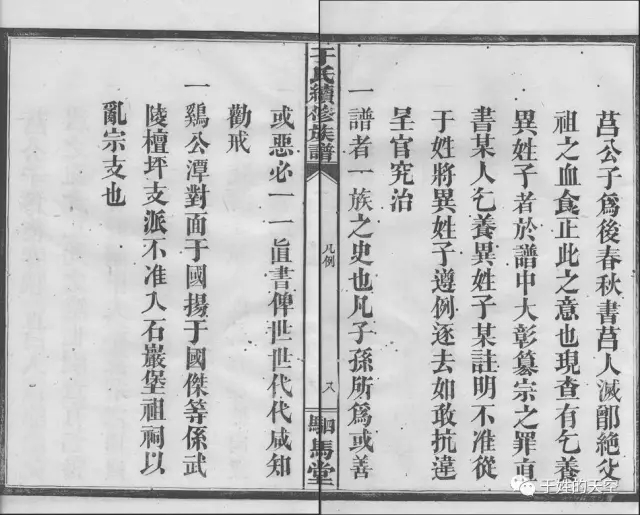 莒公子爲後春秋書莒人滅鄫絶父
祖之血食正此之意也現查有乞養
異姓子者於譜中大彰纂宗之罪直
書某人乞養異姓子某註明不准從
于姓將異姓子遵例逐去如敢抗違
呈官究治
一譜者一族之史也凡子孫所爲或善
于氏續修族譜
凡例
駟馬堂
或惡必一一眞書俾世世代代咸知
勸戒
一鷄公潭對面于國揚于國傑等係武
陵檀坪支派不准入石巖堡祖祠以
亂宗支也
于姓的天空